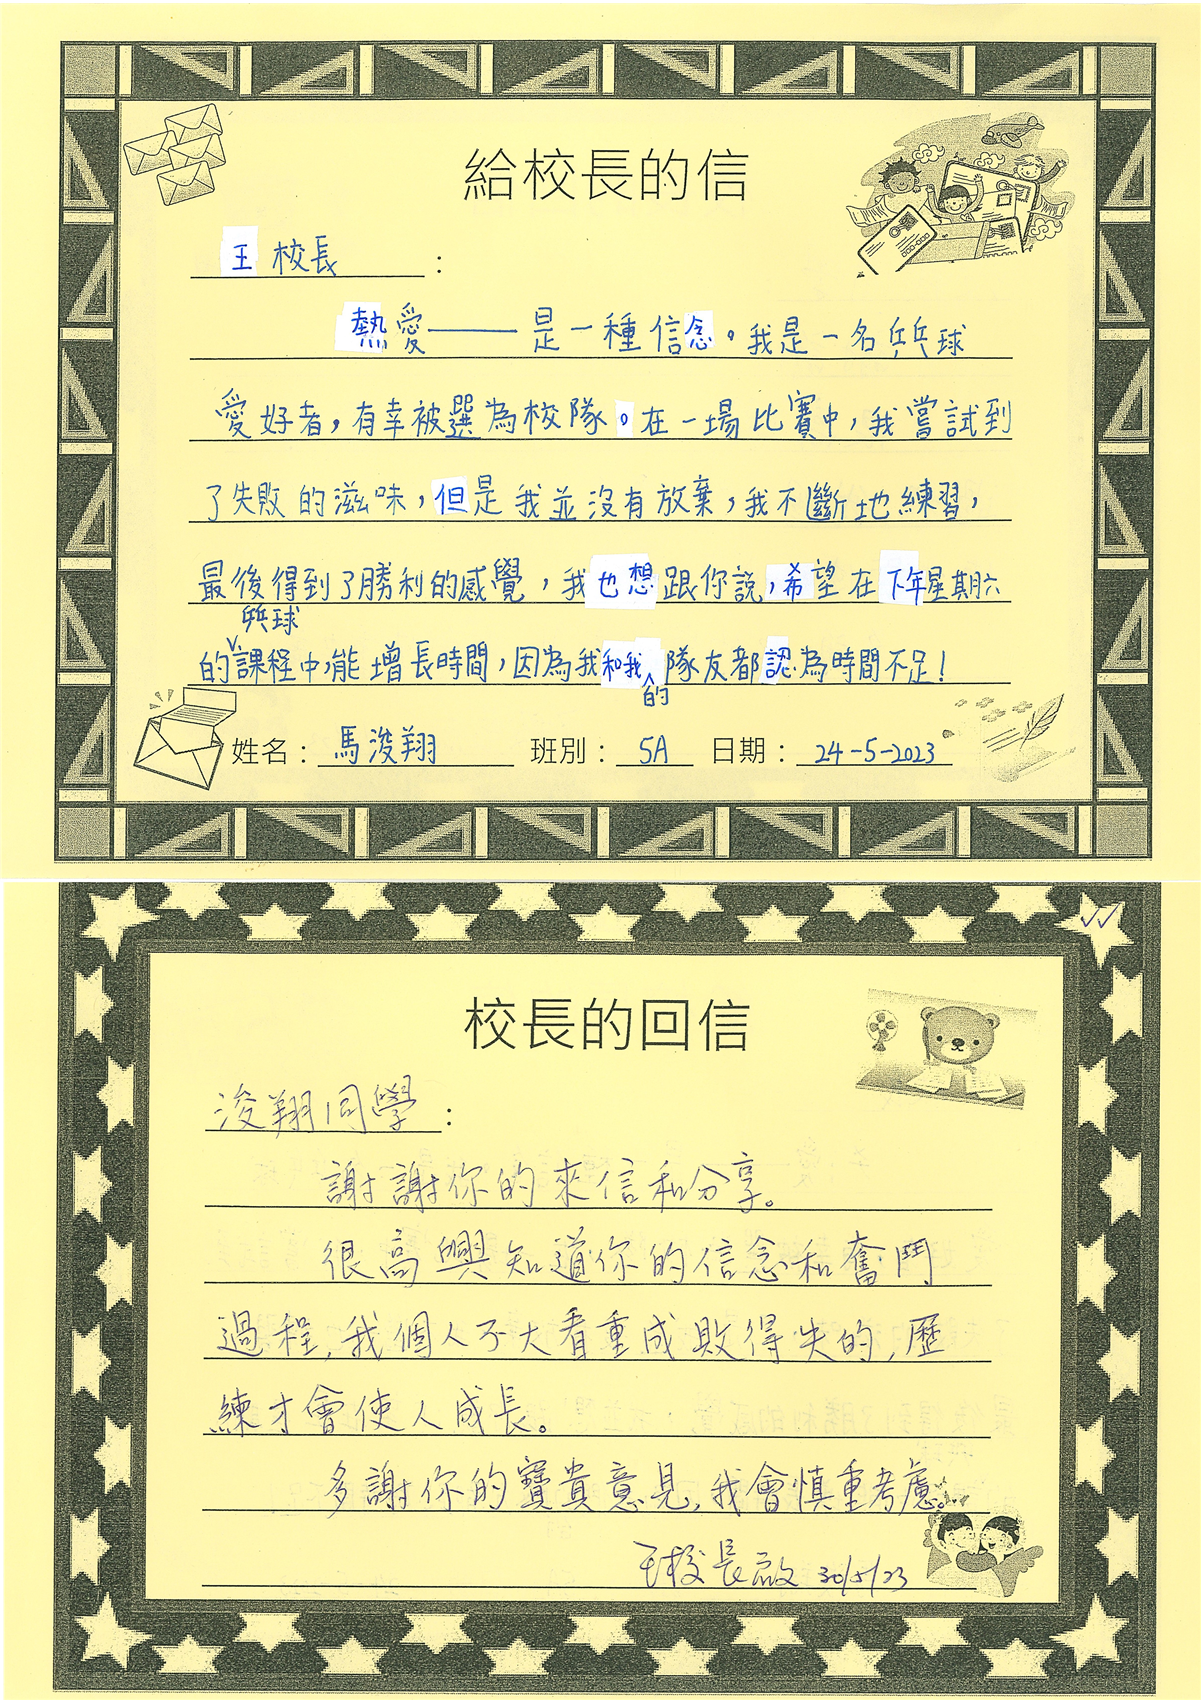 給校長的信
王校長：
熱愛——是一種信念。我是一名乒乓球
愛好者，有幸被選為校隊。在一場比賽中，我嘗試到
了失敗的滋味，但是我並沒有放棄，我不斷地練習，
最後得到了勝利的感覺，我也想跟你說，希望在下年星期六
的乒乓球課程中，能增長時間，因為我和我的隊友都認為時間不足！
姓名：馬浚翔 班別：5A 日期：24-5-2023
校長的回信
浚翔同學：
謝謝你的來信和分享。
很高興知道你的信念和奮鬥
過程，我個人不大看重成敗得失的，歷
練才會使人成長。
多謝你的寶貴意見，我會慎重考慮。
王校長啟 30/5/23